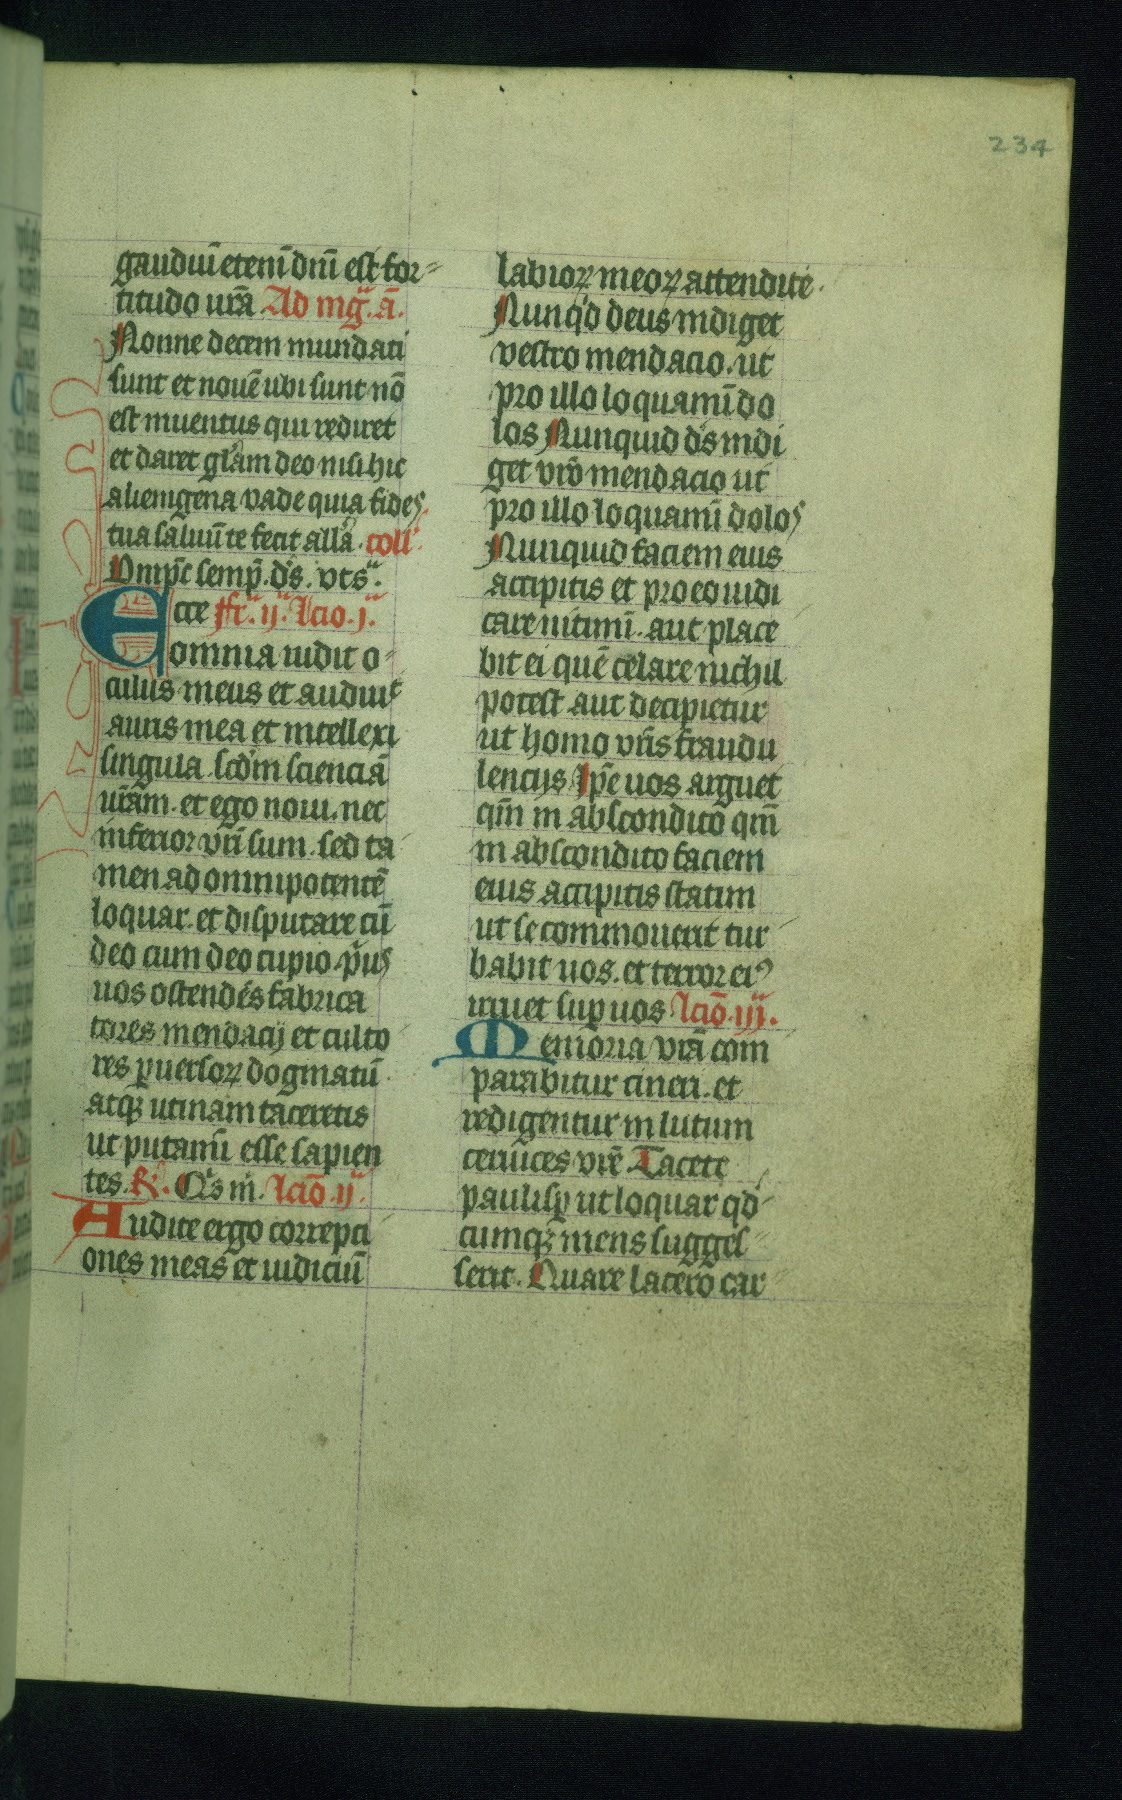 234
gaudiū eteni dnī est for-
titudo urā Ad mg̃. ā.
Nonne decem mundati
sunt et nouē ubi sunt nō
est inuentus qui rediret
et daret glām deo nisi hic
alienigena vade quia fides
tua saluū te fecit allā. coll̃.
Omp̄c semp̄. ds. vt s̃.
Ecce ffr̃. ij. lcio. j.
omnia uidit o-
culus meus et audiuit
auris mea et intellexi
singula. scdm scienciā
urām. et ego noui. nec
inferior vrī sum. sed ta
men ad omnipotentē
loquar. et disputare cū
deo cum deo cupio. pus
uos ostendēs fabrica
tores mendacij et culto
res puersoꝝ dogmatū
atqꝫ utinam taceretis
ut putamī esse sapien
tes. R̃. Qis m̄. lciō. ij.
Audite ergo correpti
ones meas et iudiciū
labioꝝ meoꝝ attendite.
Nunqd deus indiget
vestro mendacio. ut
pro illo loquamī do
los Nunquid ds indi
get vrō mendacio ut
pro illo loquamī dolos
Nunquid faciem eius
accipitis et pro eo iudi
care nitimī. aut place
bit ei quē celare nichil
potest aut decipietur
ut homo vrīs fraudu
lencijs Ipe uos arguet
qm̄ in abscondito qm̄
in abscondito faciem
eius accipitis statim
ut se commouerit tur
babit uos. et terror eiꝰ
irruet sup uos lciō. iij.
Memoria vrā com
parabitur cineri. et
redigentur in lutum
ceruices vrē. Tacete
paulisp ut loquar qd
cumqꝫ mens sugges
serit. Quare lacero car